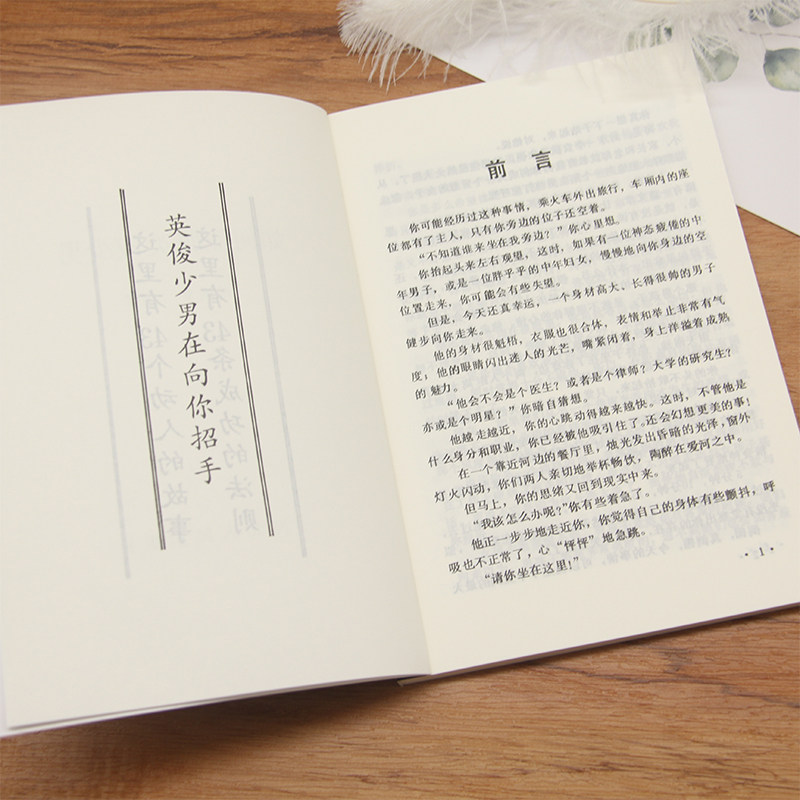 英俊少男在向你招手
前言
你可能经历过这种事情，乘火车外出旅行，车厢内的座
位都有了主人，只有你旁边的位子还空着。
“不知道谁来坐在我旁边？”你心里想。
你抬起头来左右观望，这时，如果有一位神态疲倦的中
年男子，或是一位胖乎乎的中年妇女，慢慢地向你身边的空
位置走来，你可能会有些失望。
但是，今天还真幸运，一个身材高大、长得很帅的男子
健步向你走来。
他的身材很魁梧，衣服也很合体，表情和举止非常有气
度；他的眼睛闪出迷人的光芒，嘴紧闭着，身上洋溢着成熟
的魅力。
“他会不会是个医生？或者是个律师？大学的研究生？
亦或是个明星？”你暗自猜想。
他越走越近，你的心跳动得越来越快。这时，不管他是
什么身分和职业，你已经被他吸引住了。还会幻想更美的事！
在一个靠近河边的餐厅里，烛光发出昏暗的光泽，窗外
灯火闪动，你们两人亲切地举杯畅饮，陶醉在爱河之中。
但马上，你的思绪又回到现实中来。
“我该怎么办呢？”你有些着急了。
他正一步步地走近你，你觉得自己的身体有些颤抖，呼
吸也不正常了，心“怦怦”地急跳。
“请你坐在这里！”
·1·